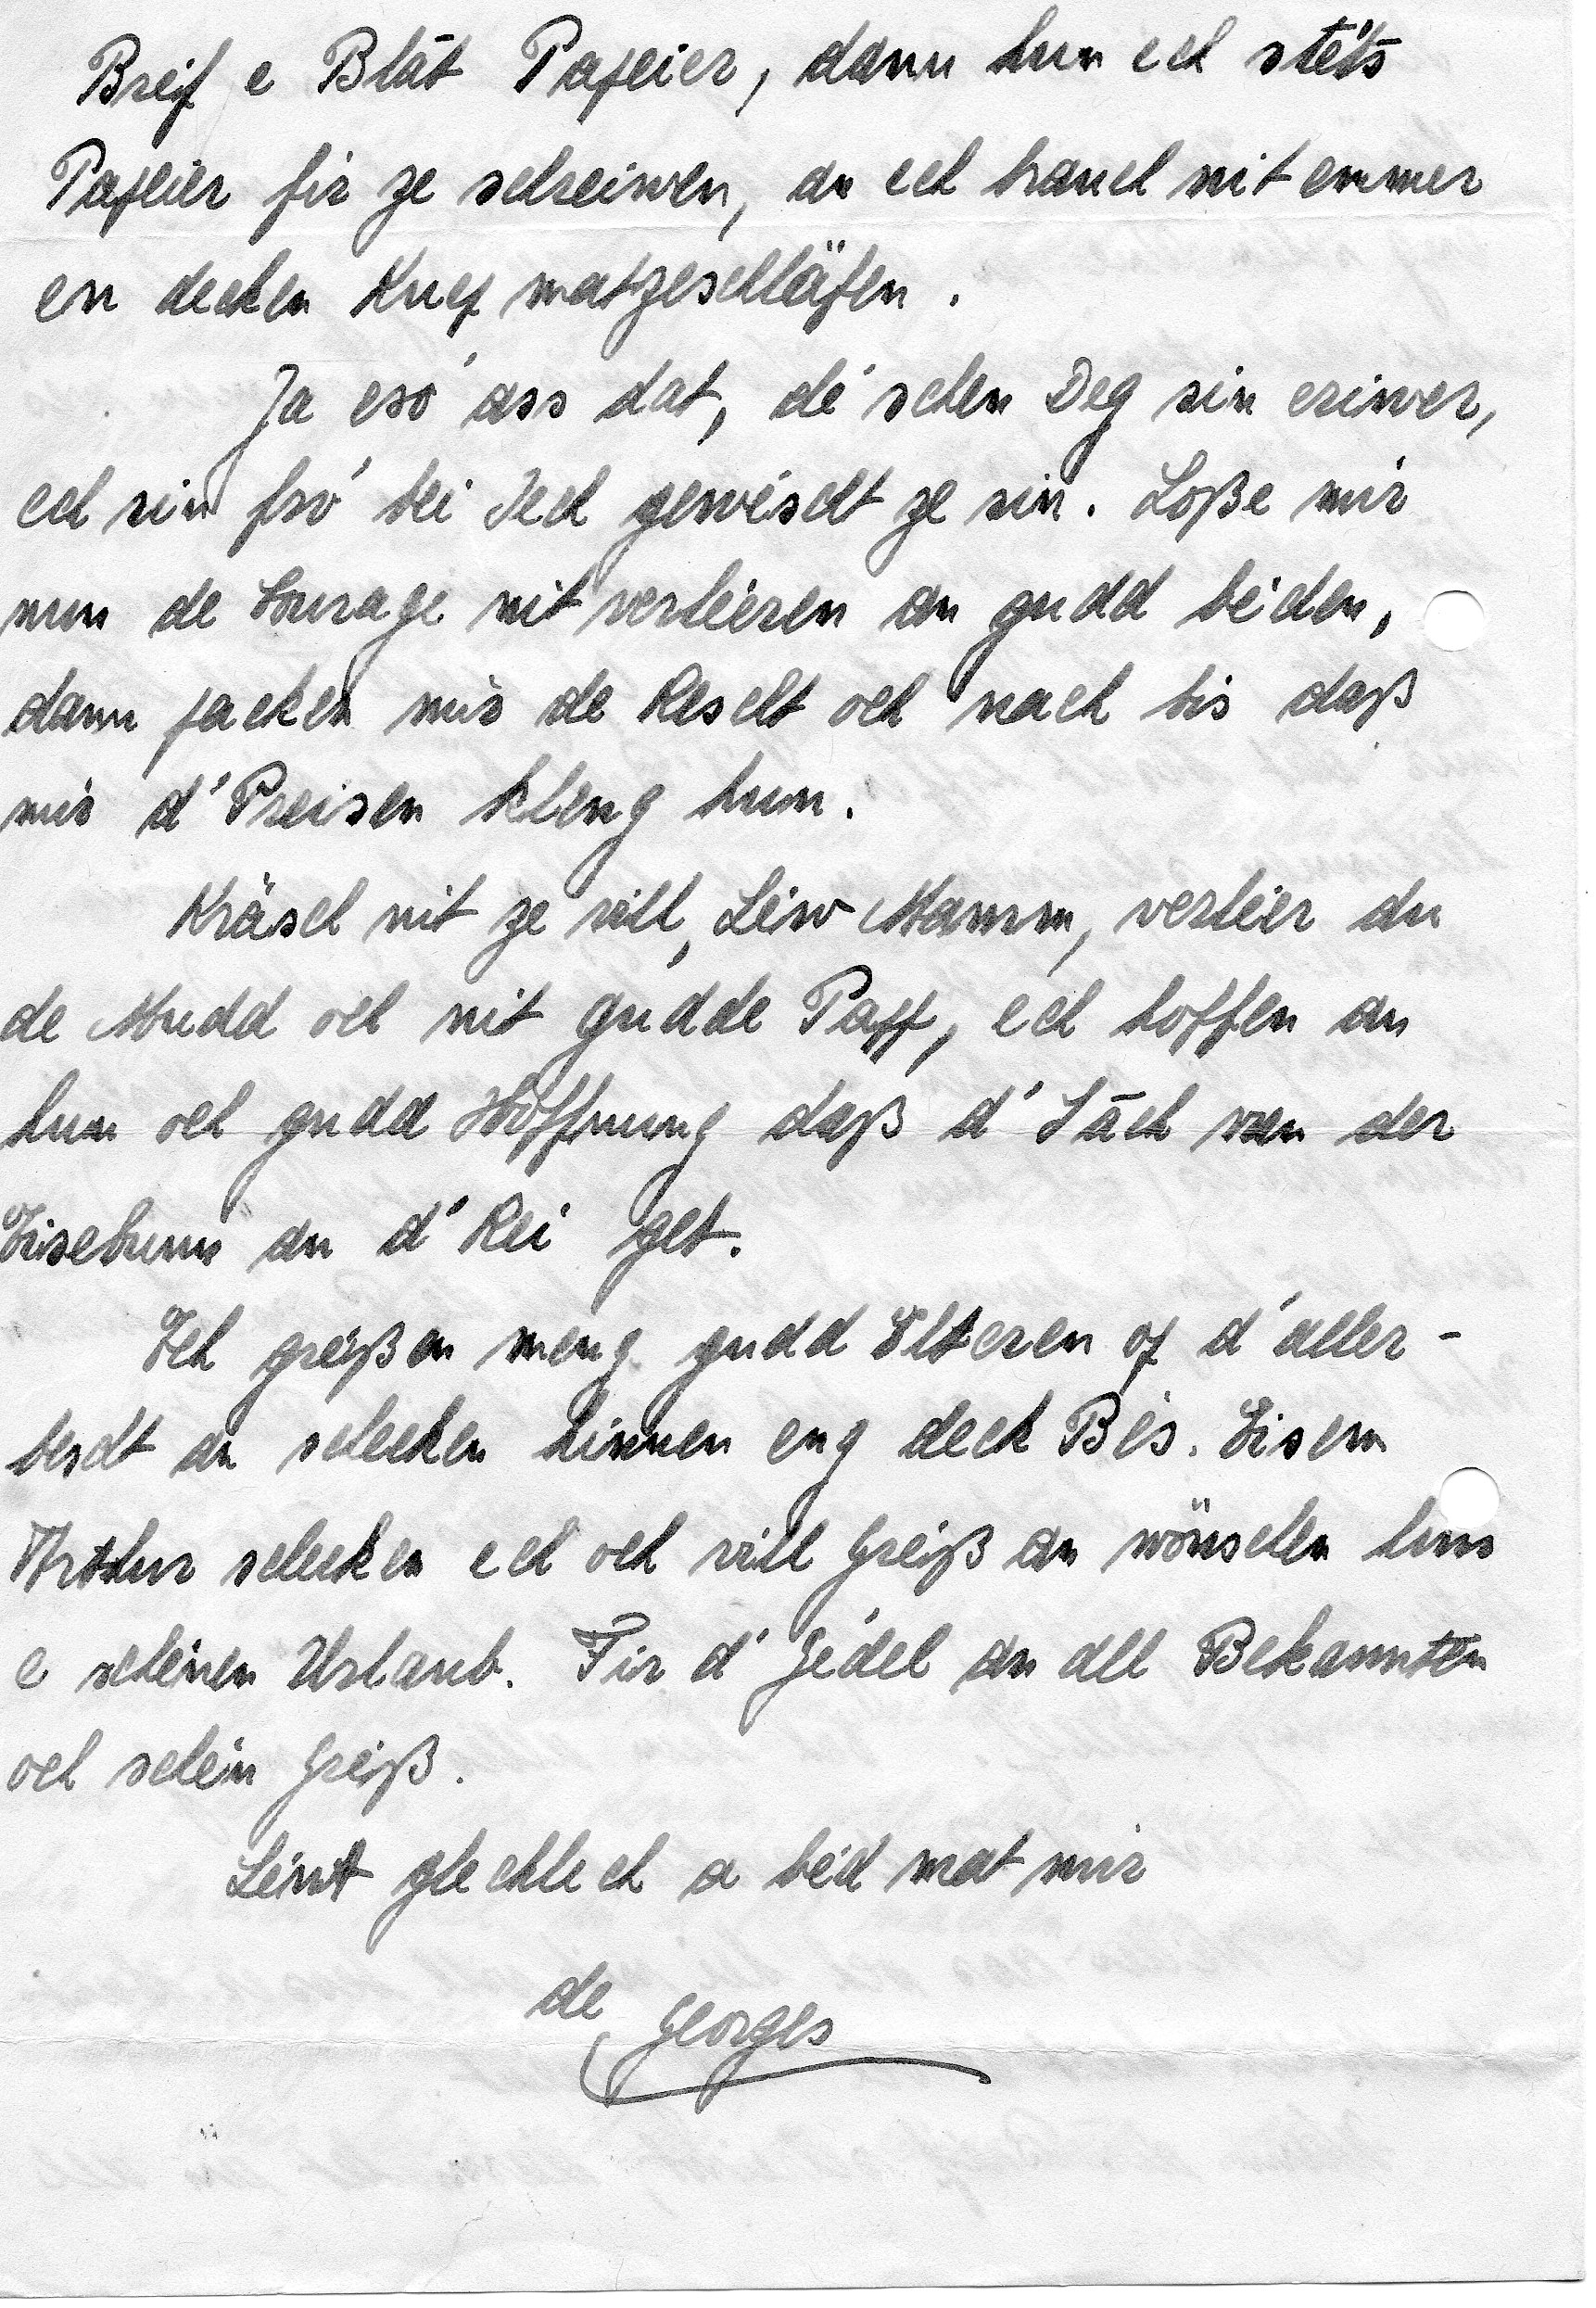 Breif e Blāt Papeier, dann hun ech stéts
Papeier fir ze schreiwen, an ech brauch nit emmer
en decken Knep matzeschläfen.
Ja esó ass dat, dé schen Deg sin eriwer,
ech sin fró bei Iech gewéscht ze sin. Loße mir
nun de Courage nit verléieren an gudd béiden,
dann packen mir de Rescht och nach bis daß
mir d'Preisen kleng hun.
Kräsch nit ze vill, Léiw Mamm, verléier du
de Mudd och nit gudde Papp, ech hoffen an
hun och gudd Hoffnung daß d'Sāch van der
Eisebunn an d'Rei get.
Ech gréißen meng gudd Elteren op d'aller-
bescht an schecken hinnen eng deck Bės. Eisem
Arthur schecken ech och vill Gréiß an wönschen him
e schéinen Urlaub. Fir d'Gédel an all Bekannten
och schéin Gréiß.
Léiwt glecklech a béd mat mir
de Georges